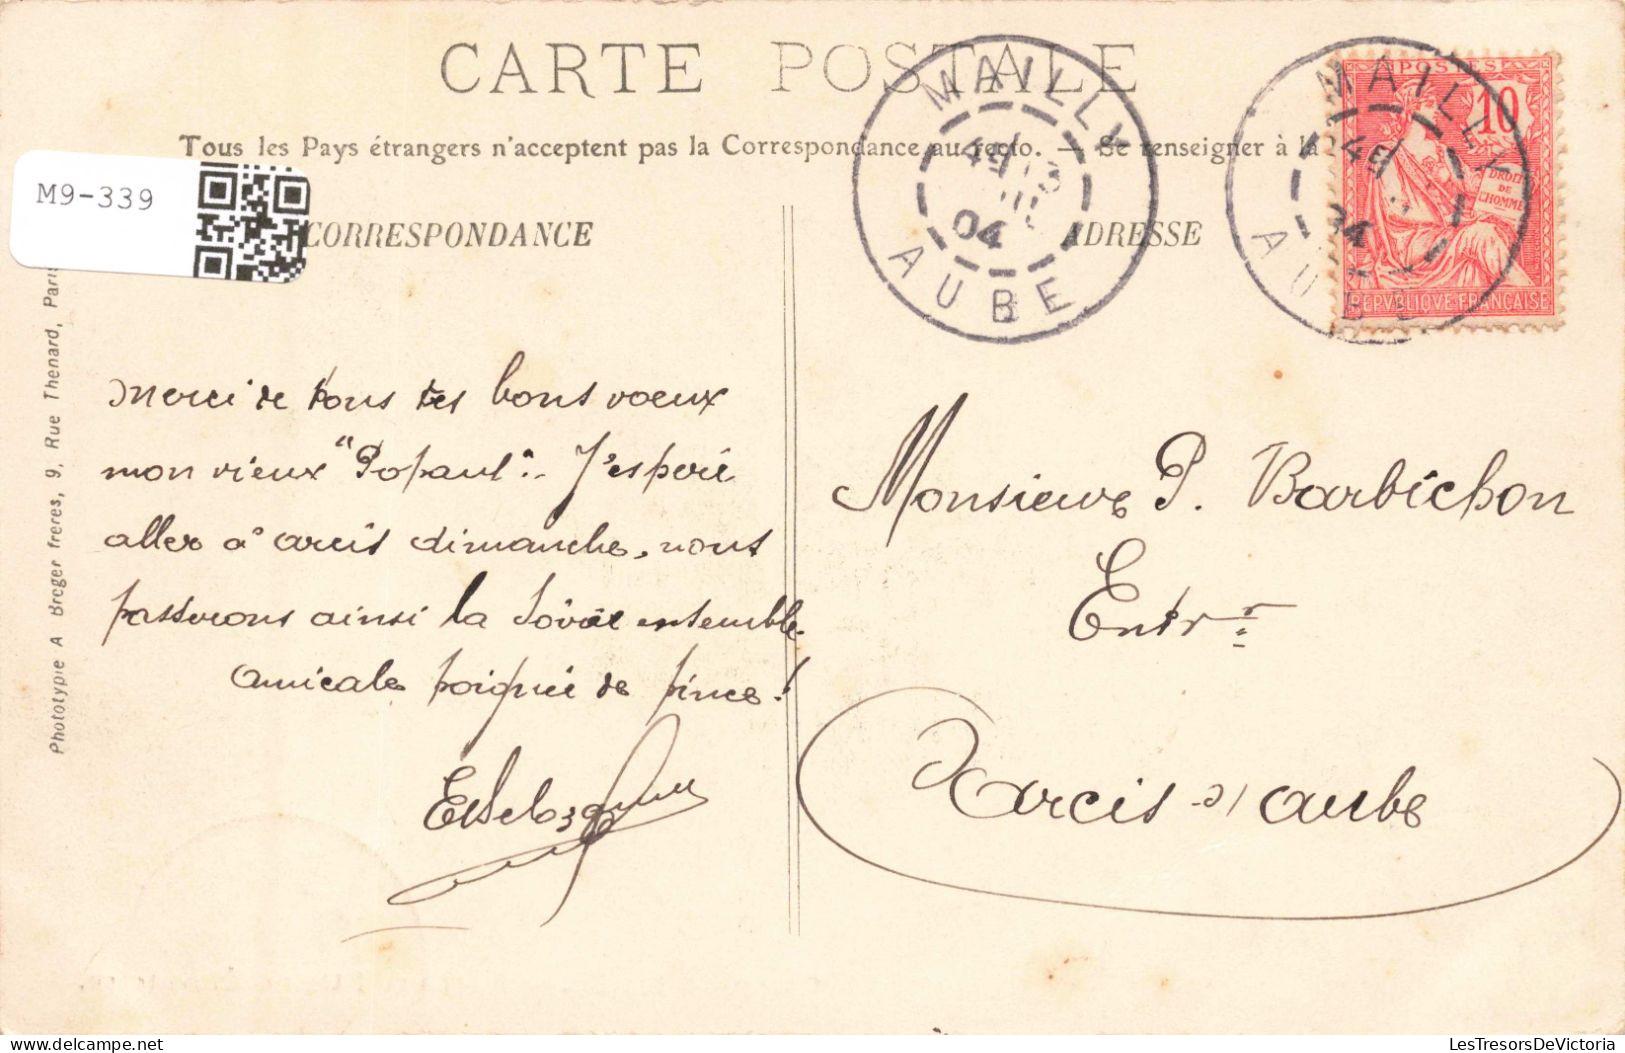 CARTE POSTALE
Tous les Pays étrangers n'acceptent pas la Correspondance au recto. — Se renseigner à la
M9-339
CORRESPONDANCE
ADRESSE
Phototypie A Breger freres, 9, Rue Thenard, Paris
MAILLY
04
AUBE
MAILLY
AUBE
POSTES
10
DROITS
DE
L'HOMME
REPVBLIQVE FRANÇAISE
Merci de tous tes bons voeux
mon vieux "Popaul". J'espère
aller à arcis dimanche, nous
passerons ainsi la soirée ensemble.
Amicale poignée de pince!
Monsieur P. Barbichon
Entr
Arcis s/ aube
delcampe.net
LesTresorsDeVictoria